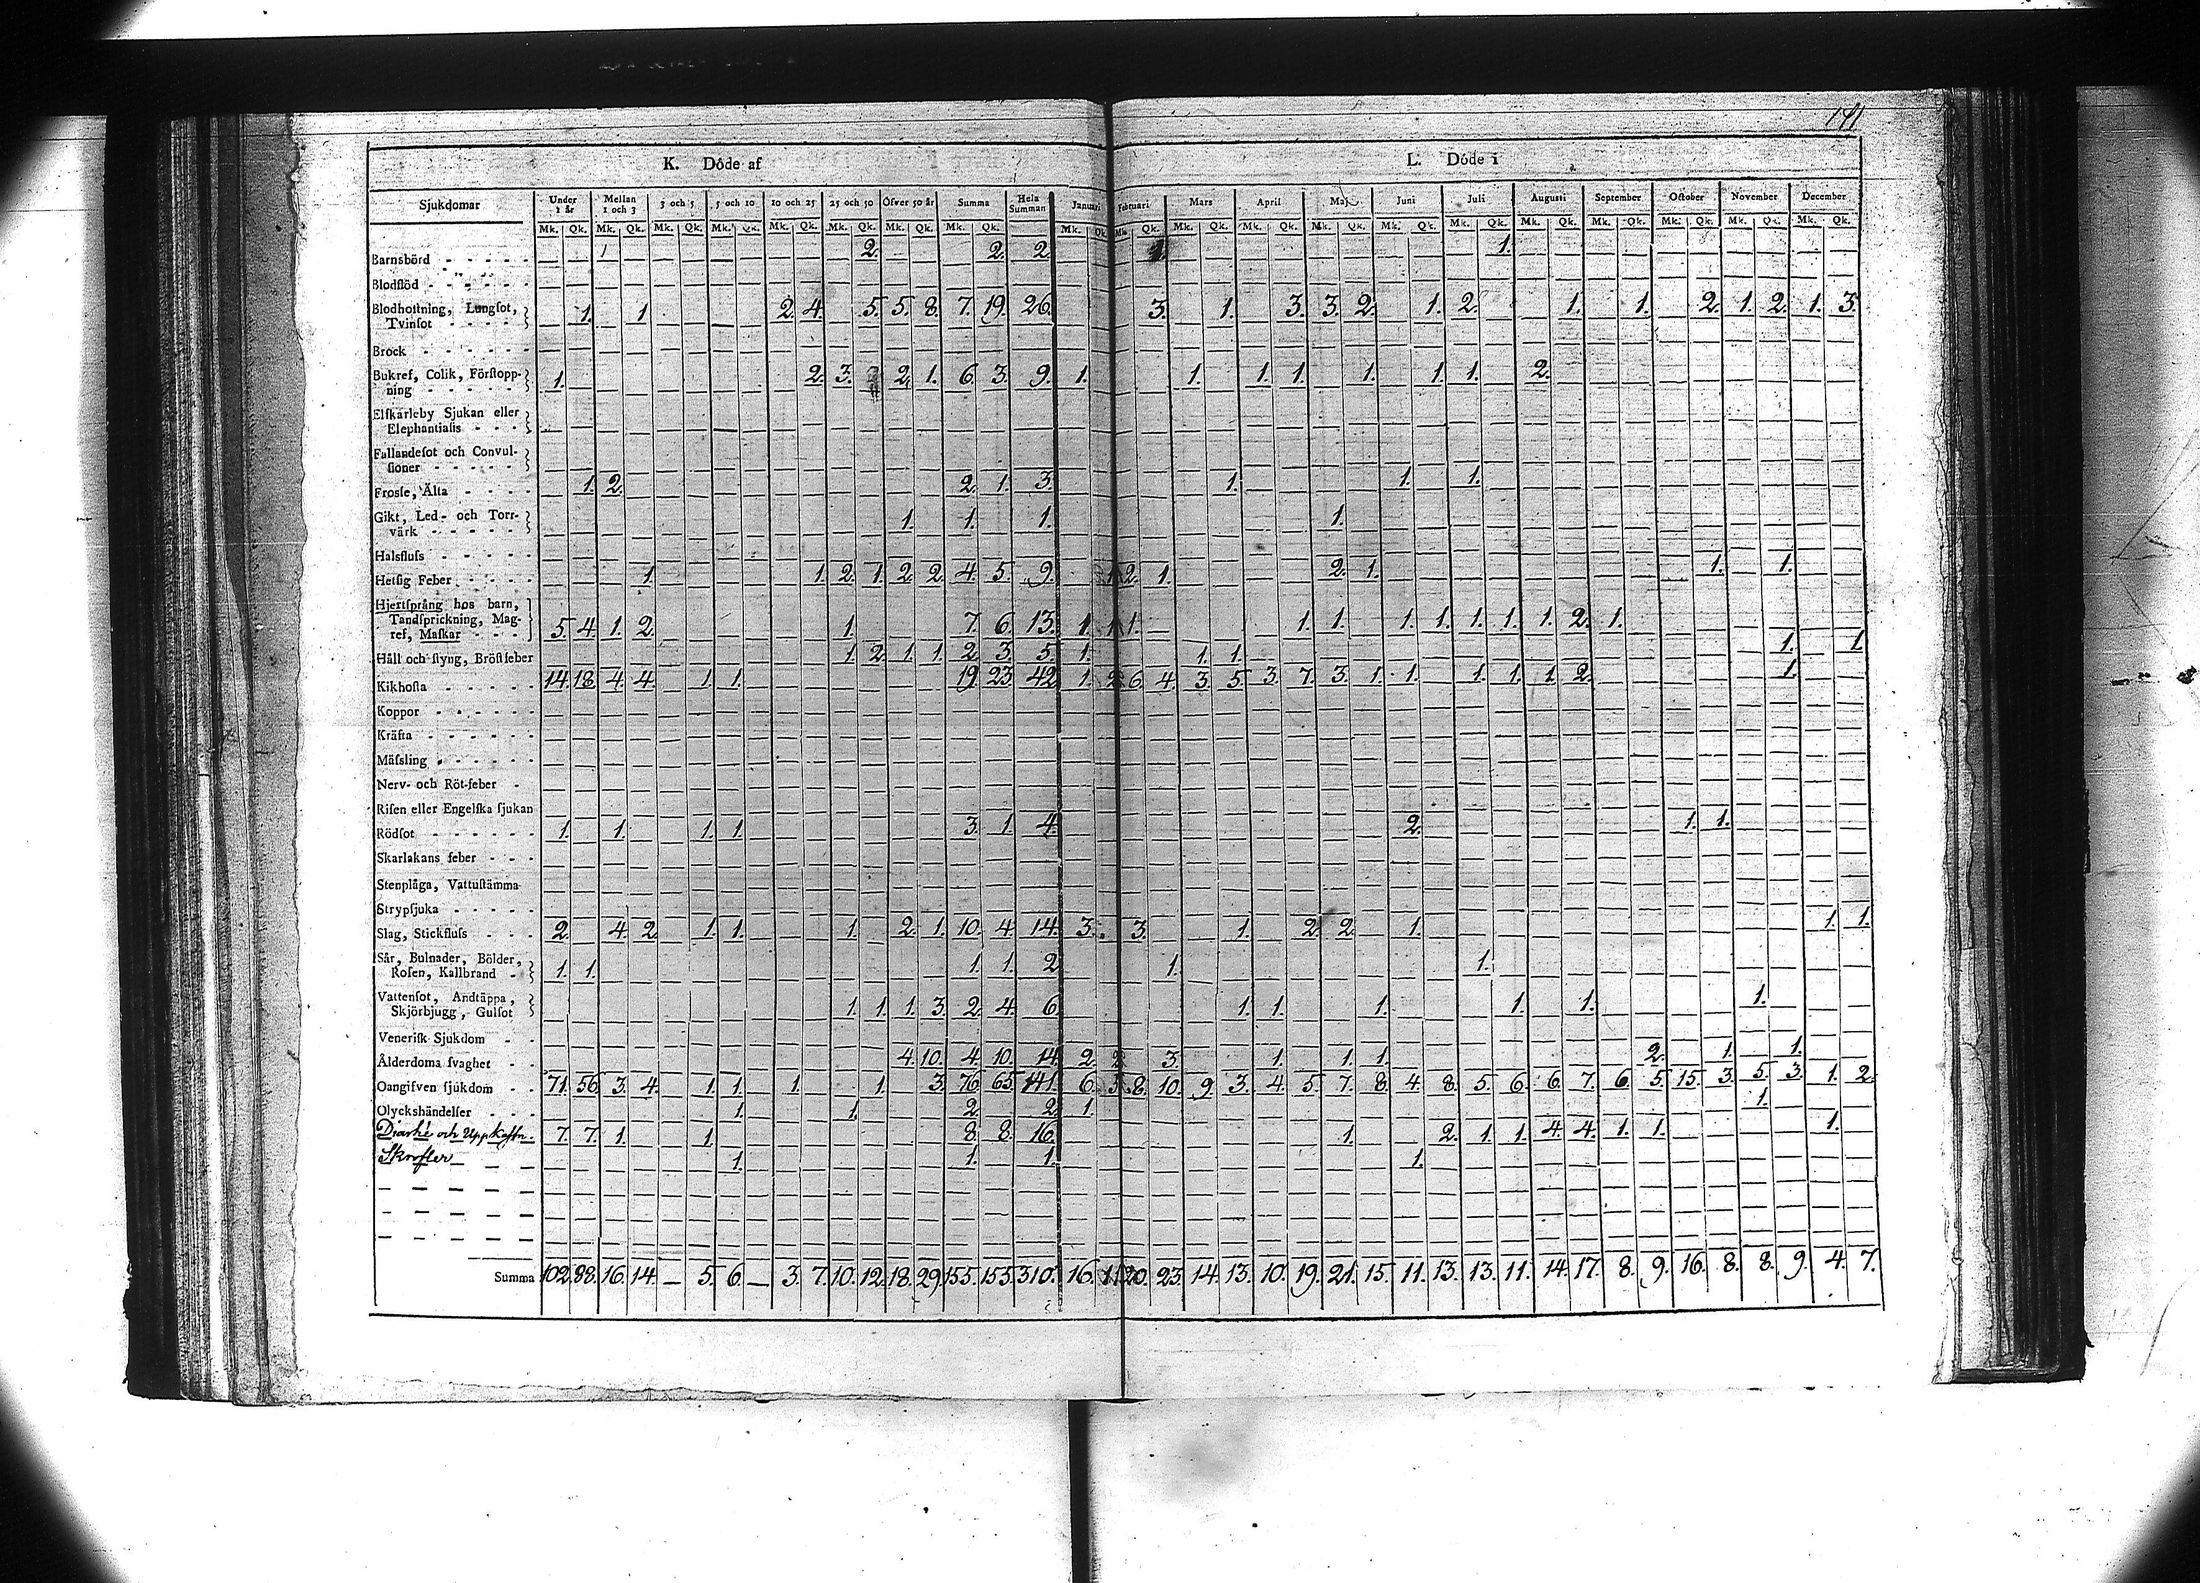 191
K. Döde af L. Döde i
Sjukdomar Under 1 år Mellan 1 och 3 3 och 5 5 och 10 10 och 25 25 och 50 Öfver 50 år Summa Hela Summan Januari Februari Mars April Maj Juni Juli Augusti September October November December
Mk. Qk. Mk. Qk. Mk. Qk. Mk. Qk. Mk. Qk. Mk. Qk. Mk. Qk. Mk. Qk. Mk. Qk. Mk. Qk. Mk. Qk. Mk. Qk. Mk. Qk. Mk. Qk. Mk. Qk. Mk. Qk. Mk. Qk. Mk. Qk. Mk. Qk. Mk. Qk.
Barnsbörd 2. 2. 2. 1. 1.
Blodflöd
Blodhostning, Lungsot,
Tvinsot 1. 1 2. 4. 5. 5. 8. 7. 19. 26. 3. 1. 3. 3. 2. 1. 2. 1. 1. 2. 1. 2. 1. 3.
Brock
Bukref, Colik, Förstopp-
ning 1. 2. 3. 2. 1. 6. 3. 9. 1. 1. 1. 1. 1. 1. 1. 2.
Elfkarleby Sjukan eller
Elephantiasis
Fallandesot och Convul-
sioner
Frosse, Älta 1. 2. 2. 1. 3. 1. 1. 1.
Gikt, Led- och Torr-
värk 1. 1. 1. 1.
Halsfluss
Hetsig Feber 1. 1. 2. 1. 2. 2. 4. 5. 9. 1. 2. 1. 2. 1. 1. 1.
Hjertsprång hos barn,
Tandsprickning, Mag-
ref, Maskar 5. 4. 1. 2. 1. 7. 6. 13. 1. 1. 1. 1. 1. 1. 1. 1. 1. 1. 2. 1.
Håll och styng, Bröstfeber 1. 2. 1. 1. 2. 3. 5. 1. 1. 1. 1. 1.
Kikhosta 14. 18. 4. 4. 1. 1. 19. 23. 42. 1. 2. 6. 4. 3. 5. 3. 7. 3. 1. 1. 1. 1. 1. 2. 1.
Koppor
Kräfta
Mässling
Nerv- och Röt-feber
Risen eller Engelska sjukan
Rödsot 1. 1. 1. 1. 3. 1. 4. 2. 1. 1.
Skarlakans feber
Stenplåga, Vattustämma
Strypsjuka
Slag, Stickfluss 2. 4. 2. 1. 1. 1. 2. 1. 10. 4. 14. 3. 3. 1. 2. 2. 1. 1. 1.
Sår, Bulnader, Bölder,
Rosen, Kallbrand 1. 1. 1. 1. 2. 1. 1.
Vattensot, Andtäppa,
Skjörbjugg, Gulsot 1. 1. 1. 3. 2. 4. 6. 1. 1. 1. 1. 1. 1.
Venerisk Sjukdom
Ålderdoms svaghet 4. 10. 4. 10. 14. 2. 2. 3. 1. 1. 1. 2. 1. 1.
Oangifven sjukdom 71. 56. 3. 4. 1. 1. 1. 1. 3. 76. 65. 141. 6. 5. 8. 10. 9. 3. 4. 5. 7. 8. 4. 8. 5. 6. 6. 7. 6. 5. 15. 3. 5. 3. 1. 2.
Olyckshändelser 1. 1. 2. 2. 1. 1.
Diarhé och Uppkastn. 7. 7. 1. 1. 8. 8. 16. 1. 2. 1. 1. 4. 4. 1. 1. 1.
Skrofler 1. 1. 1. 1.
Summa 102. 98. 16. 14. — 5. 6. — 3. 7. 10. 12. 18. 29. 155. 155. 310. 16. 11. 20. 23. 14. 13. 10. 19. 21. 15. 11. 13. 13. 11. 14. 17. 8. 9. 16. 8. 8. 9. 4. 7.